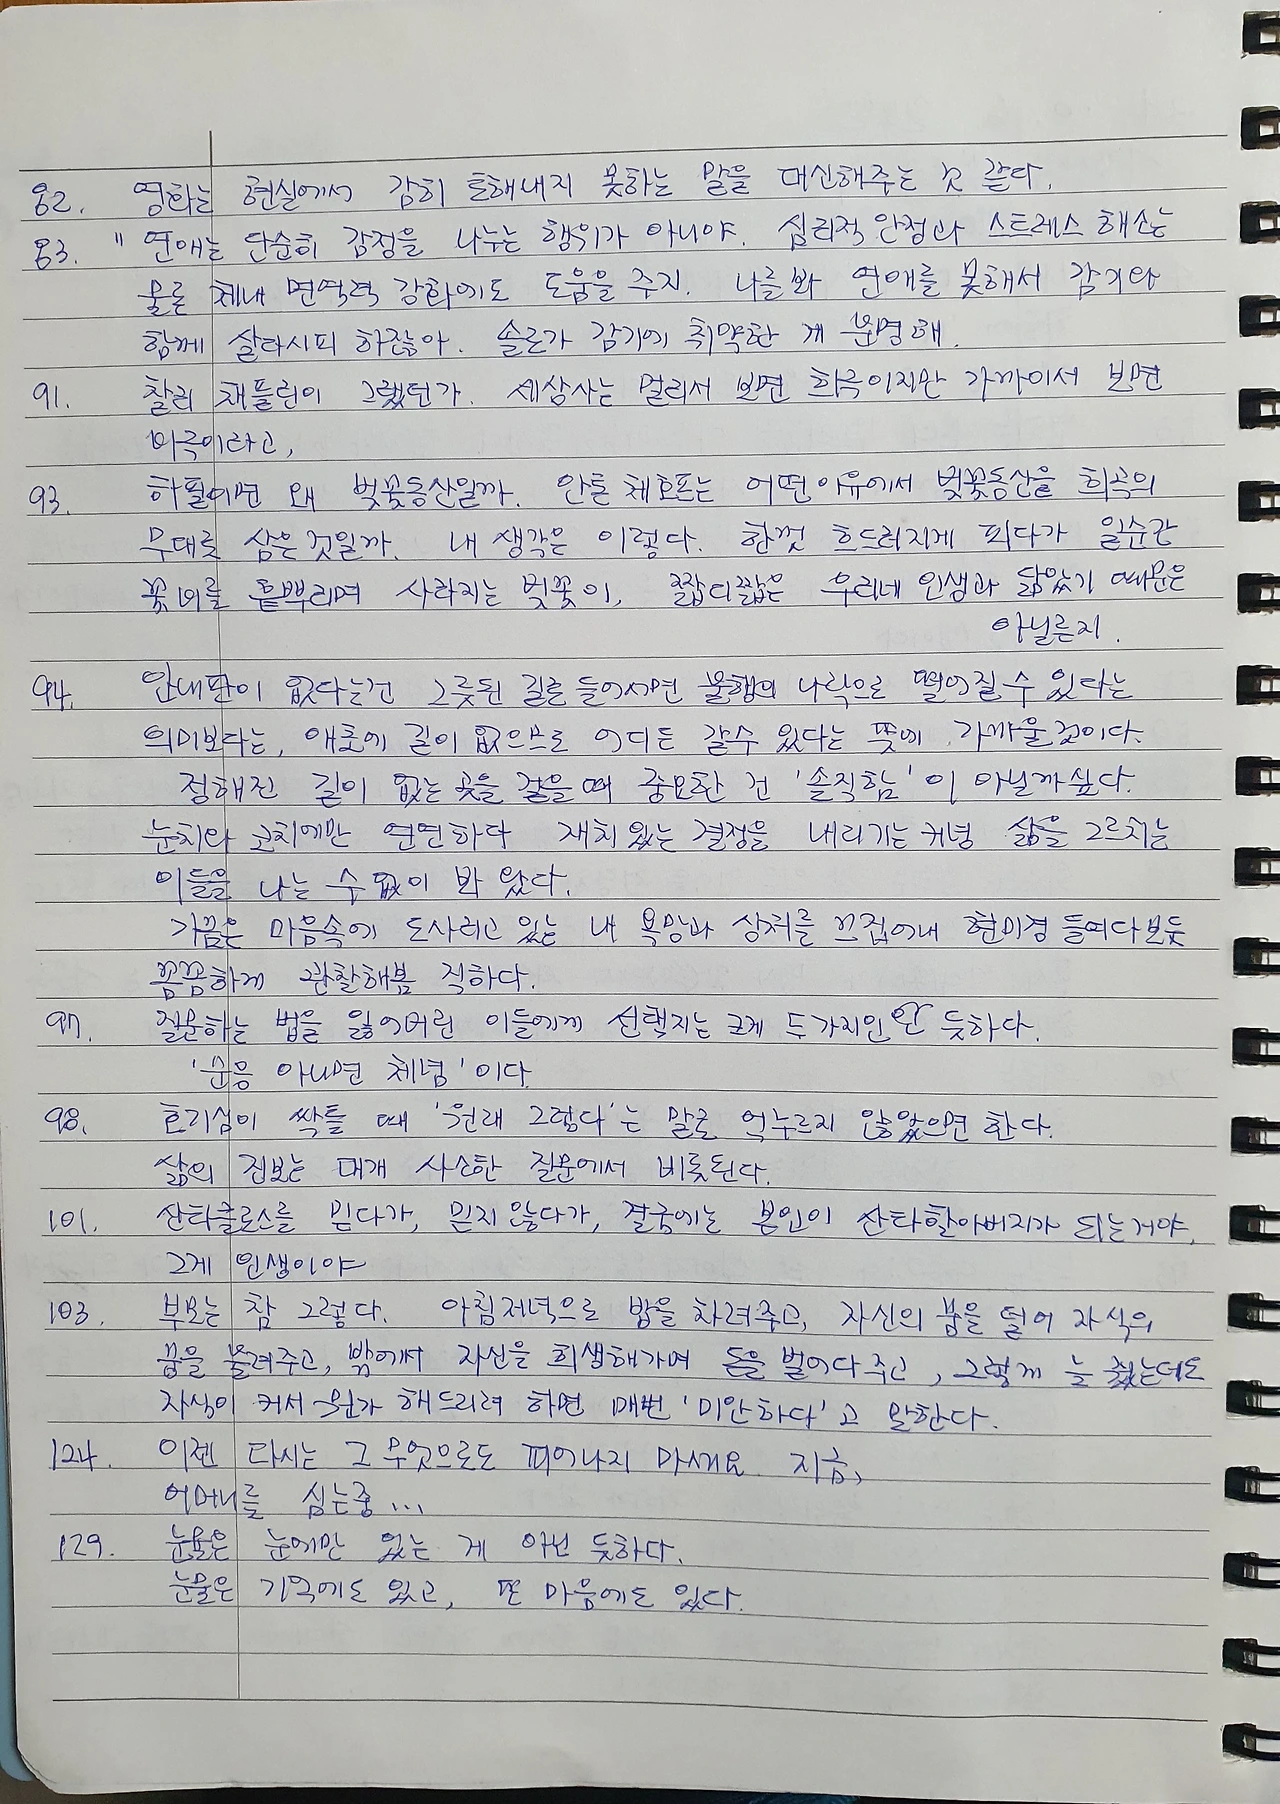 82. 영화는 현실에서 감히 토해내지 못하는 말을 대신해주는 것 같다.
83. " 연애는 단순히 감정을 나누는 행위가 아니야. 심리적 안정과 스트레스 해소는
물론 체내 면역력 강화에도 도움을 주지. 나를 봐 연애를 못해서 감기와
함께 살다시피 하잖아. 솔로가 감기에 취약한 게 분명해.
91. 찰리 채플린이 그랬던가. 세상사는 멀리서 보면 희극이지만 가까이서 보면
비극이라고,
93. 하필이면 왜 벚꽃동산일까. 안톤 체호프는 어떤이유에서 벚꽃동산을 희곡의
무대로 삼은것일까. 내 생각은 이렇다. 한껏 흐드러지게 피다가 일순간
꽃비를 흩뿌리며 사라지는 벚꽃이, 짧디짧은 우리네 인생과 닮았기 때문은
아닐른지.
94. 안내판이 없다는건 그릇된 길로 들어서면 불행의 나락으로 떨어질수 있다는
의미보다는, 애초에 길이 없으므로 어디든 갈수 있다는 뜻에 가까울것이다.
정해진 길이 없는 곳을 걸을때 중요한 건 '솔직함'이 아닐까싶다.
눈치와 코치에만 연연하다 재치있는 결정을 내리기는 커녕 삶을 그르치는
이들을 나는 수없이 봐 왔다.
가끔은 마음속에 도사리고 있는 내 욕망과 상처를 끄집어내 현미경 들여다보듯
꼼꼼하게 관찰해봄 직하다.
97. 질문하는 법을 잃어버린 이들에게 선택지는 크게 두가지인 듯하다.
'순응 아니면 체념'이다
98. 호기심이 싹틀 때 '원래 그렇다'는 말로 억누르지 않았으면 한다.
삶의 진보는 대개 사소한 질문에서 비롯된다.
101. 산타클로스를 믿다가, 믿지 않다가, 결국에는 본인이 산타할아버지가 되는거야.
그게 인생이야
103. 부모는 참 그렇다. 아침저녁으로 밥을 차려주고, 자신의 꿈을 덜어 자식의
꿈을 불려주고, 밖에서 자신을 희생해가며 돈을 벌어다주고, 그렇게 늘 줬는데도
자식이 커서 뭔가 해드리려 하면 매번 '미안하다'고 말한다.
124. 이젠 다시는 그 무엇으로도 피어나지 마세요. 지금,
어머니를 심는중...
129. 눈물은 눈에만 있는 게 아닌 듯하다.
눈물은 기억에도 있고, 또 마음에도 있다.